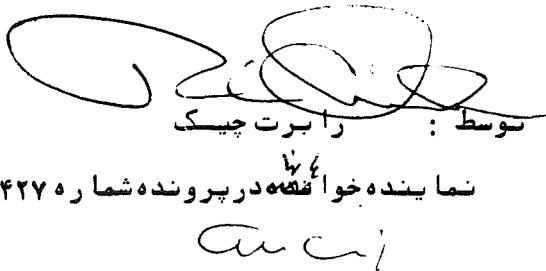 توسط : رابرت چیسک
نماینده خواهانها در پرونده شماره ۴۲۷